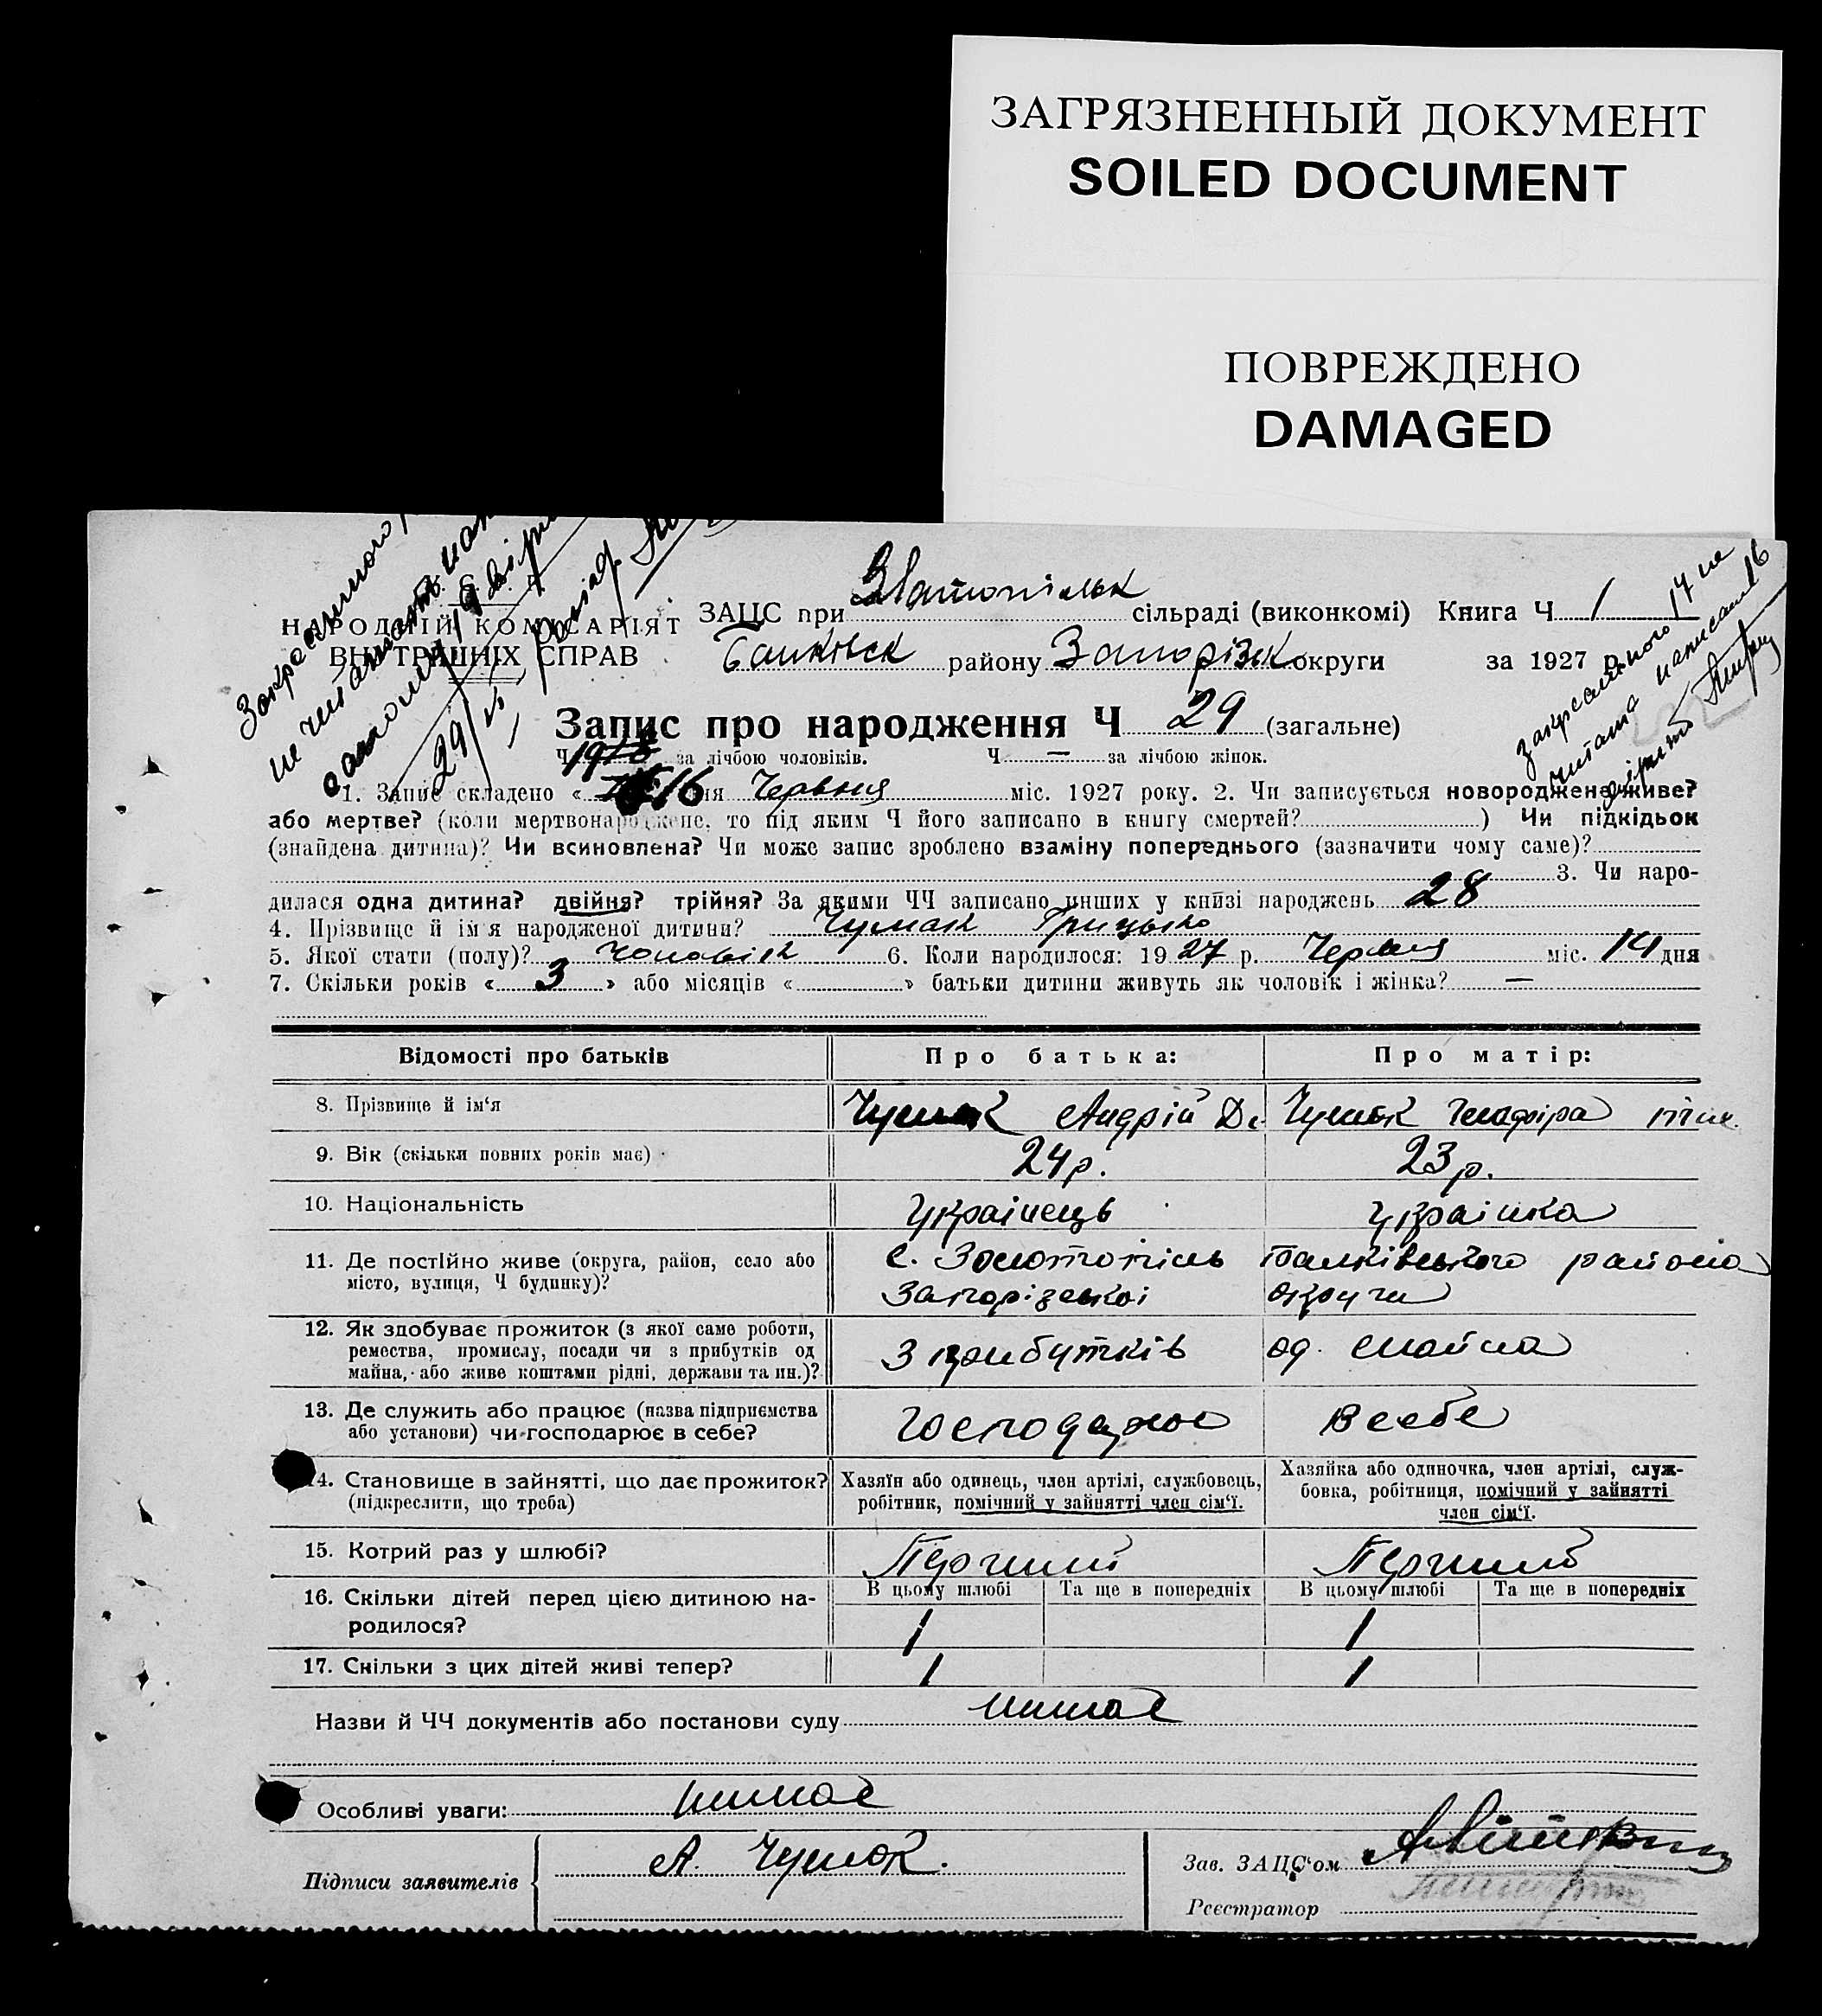 ЗАГРЯЗНЕННЫЙ ДОКУМЕНТ
SOILED DOCUMENT
ПОВРЕЖДЕНО
DAMAGED
НАРОДНІЙ КОМІСАРІЯТ
ВНУТРІШНІХ СПРАВ
ЗАЦС при сільраді (виконкомі) Книга Ч 1
району Запорізьк округи за 1927 р.
Запис про народження Ч 29 (загальне)
Ч за лічбою чоловіків. Ч — за лічбою жінок.
1. Запис складено « 16 дня Червня міс. 1927 року. 2. Чи записується новороджене живе?
або мертве? (коли мертвонароджене, то під яким Ч його записано в книгу смертей? ) Чи підкідьок
(знайдена дитина)? Чи всиновлена? Чи може запис зроблено взаміну попереднього (зазначити чому саме)?
3. Чи наро-
дилася одна дитина? двійня? трійня? За якими ЧЧ записано инших у книзі народжень 28
4. Прізвище й ім'я народженої дитини? Чумак Грицько
5. Якої стати (полу)? Чоловік 6. Коли народилося: 1927 р. Червня міс. 14 дня
7. Скільки років « 3 » або місяців « » батьки дитини живуть як чоловік і жінка? —
Відомості про батьків Про батька: Про матір:
8. Прізвище й ім'я Чумак Андрій Чумак
9. Вік (скільки повних років має) 24 р. 23 р.
10. Національність Українець Українка
11. Де постійно живе (округа, район, село або с. Золотопіль Балківського района
місто, вулиця, Ч будинку)? Запорізької округи
12. Як здобуває прожиток (з якої саме роботи,
ремества, промислу, посади чи з прибутків од З прибутків од майна
майна, або живе коштами рідні, держави та ин.)?
13. Де служить або працює (назва підприємства Господарює в себе
або установи) чи господарює в себе?
14. Становище в зайнятті, що дає прожиток? Хазяїн або одинець, член артілі, службовець, Хазяйка або одиночка, член артілі, служ-
(підкреслити, що треба) робітник, помічний у зайнятті член сім'ї. бовка, робітниця, помічний у зайнятті
член сім'ї.
15. Котрий раз у шлюбі? Перший Перший
16. Скільки дітей перед цією дитиною на- В цьому шлюбі Та ще в попередніх В цьому шлюбі Та ще в попередніх
родилося? 1 1
17. Скільки з цих дітей живі тепер? 1 1
Назви й ЧЧ документів або постанови суду немає
Особливі уваги: немає
Підписи заявителів А. Чумак.
Зав. ЗАЦС'ом
Реєстратор